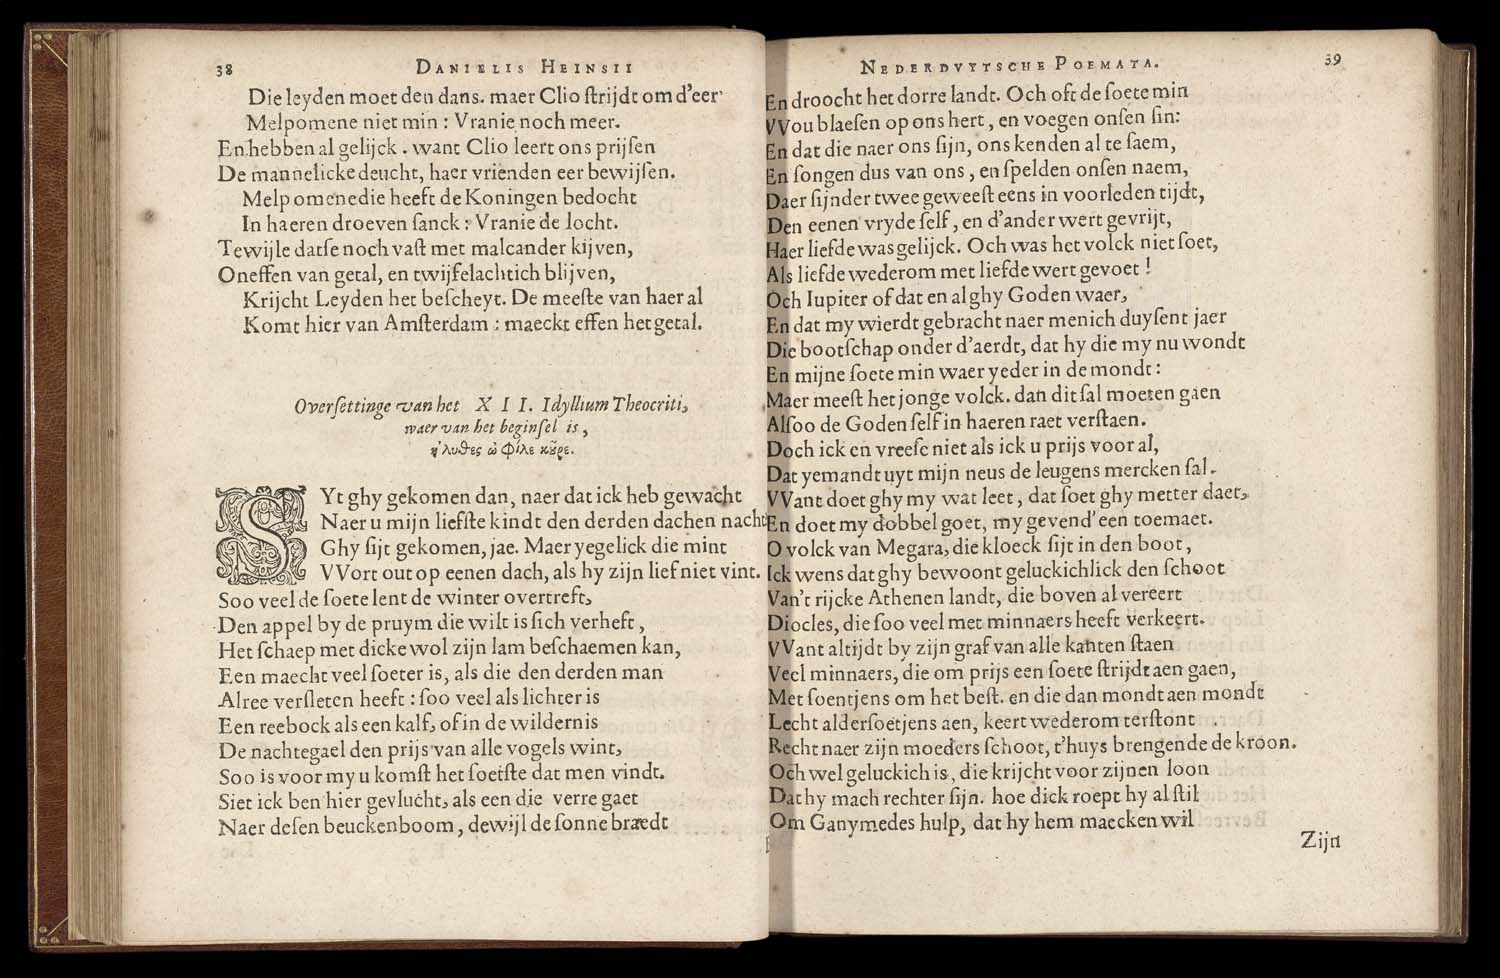 38 DANIELIS HEINSII
Die leyden moet den dans. maer Clio ſtrijdt om d'eer
Melpomene niet min : Vranie noch meer.
En hebben al gelijck . want Clio leert ons prijſen
De mannelicke deucht, haer vrienden eer bewijſen.
Melpomene die heeft de Koningen bedocht
In haeren droeven ſanck : Vranie de locht.
Tewijle datſe noch vaſt met malcander kijven,
Oneffen van getal, en twijfelachtich blijven,
Krijcht Leyden het beſcheyt. De meeſte van haer al
Komt hier van Amſterdam : maeckt effen het getal.
Overſettinge van het XII. Idyllium Theocriti,
waer van het beginſel is,
ἤλυθες ὦ φίλε κοῦρε.
SYt ghy gekomen dan, naer dat ick heb gewacht
Naer u mijn liefſte kindt den derden dach en nacht
Ghy ſijt gekomen, jae. Maer yegelick die mint
VVort out op eenen dach, als hy zijn lief niet vint.
Soo veel de ſoete lent de winter overtreft,
Den appel by de pruym die wilt is ſich verheft ,
Het ſchaep met dicke wol zijn lam beſchaemen kan,
Een maecht veel ſoeter is, als die den derden man
Alree verſleten heeft : ſoo veel als lichter is
Een reebock als een kalf, of in de wildernis
De nachtegael den prijs van alle vogels wint,
Soo is voor my u komſt het ſoetſte dat men vindt.
Siet ick ben hier gevlucht, als een die verre gaet
Naer deſen beuckenboom, dewijl de ſonne braedt
NEDERDVYTSCHE POEMATA. 39
En droocht het dorre landt. Och oft de ſoete min
VVou blaeſen op ons hert, en voegen onſen ſin:
En dat die naer ons ſijn, ons kenden al te ſaem,
En ſongen dus van ons, en ſpelden onſen naem,
Daer ſijnder twee geweeſt eens in voorleden tijdt,
Den eenen vryde ſelf, en d'ander wert gevrijt,
Haer liefde was gelijck. Och was het volck niet ſoet,
Als liefde wederom met liefde wert gevoet !
Och Iupiter of dat en al ghy Goden waer,
En dat my wierdt gebracht naer menich duyſent jaer
Die bootſchap onder d'aerdt, dat hy die my nu wondt
En mijne ſoete min waer yeder in de mondt :
Maer meeſt het jonge volck. dan dit ſal moeten gaen
Alſoo de Goden ſelf in haeren raet verſtaen.
Doch ick en vreeſe niet als ick u prijs voor al,
Dat yemandt uyt mijn neus de leugens mercken ſal.
VVant doet ghy my wat leet, dat ſoet ghy metter daet,
En doet my dobbel goet, my gevend' een toemaet.
O volck van Megara, die kloeck ſijt in den boot,
Ick wens dat ghy bewoont geluckichlick den ſchoot
Van't rijcke Athenen landt, die boven al vereert
Diocles, die ſoo veel met minnaers heeft verkeert.
VVant altijdt by zijn graf van alle kanten ſtaen
Veel minnaers, die om prijs een ſoete ſtrijdt aen gaen,
Met ſoentjens om het beſt. en die dan mondt aen mondt
Lecht alderſoetjens aen, keert wederom terſtont .
Recht naer zijn moeders ſchoot, t'huys brengende de kroon.
Och wel geluckich is, die krijcht voor zijnen loon
Dat hy mach rechter ſijn. hoe dick roept hy al ſtil
Om Ganymedes hulp, dat hy hem maecken wil
Zijn